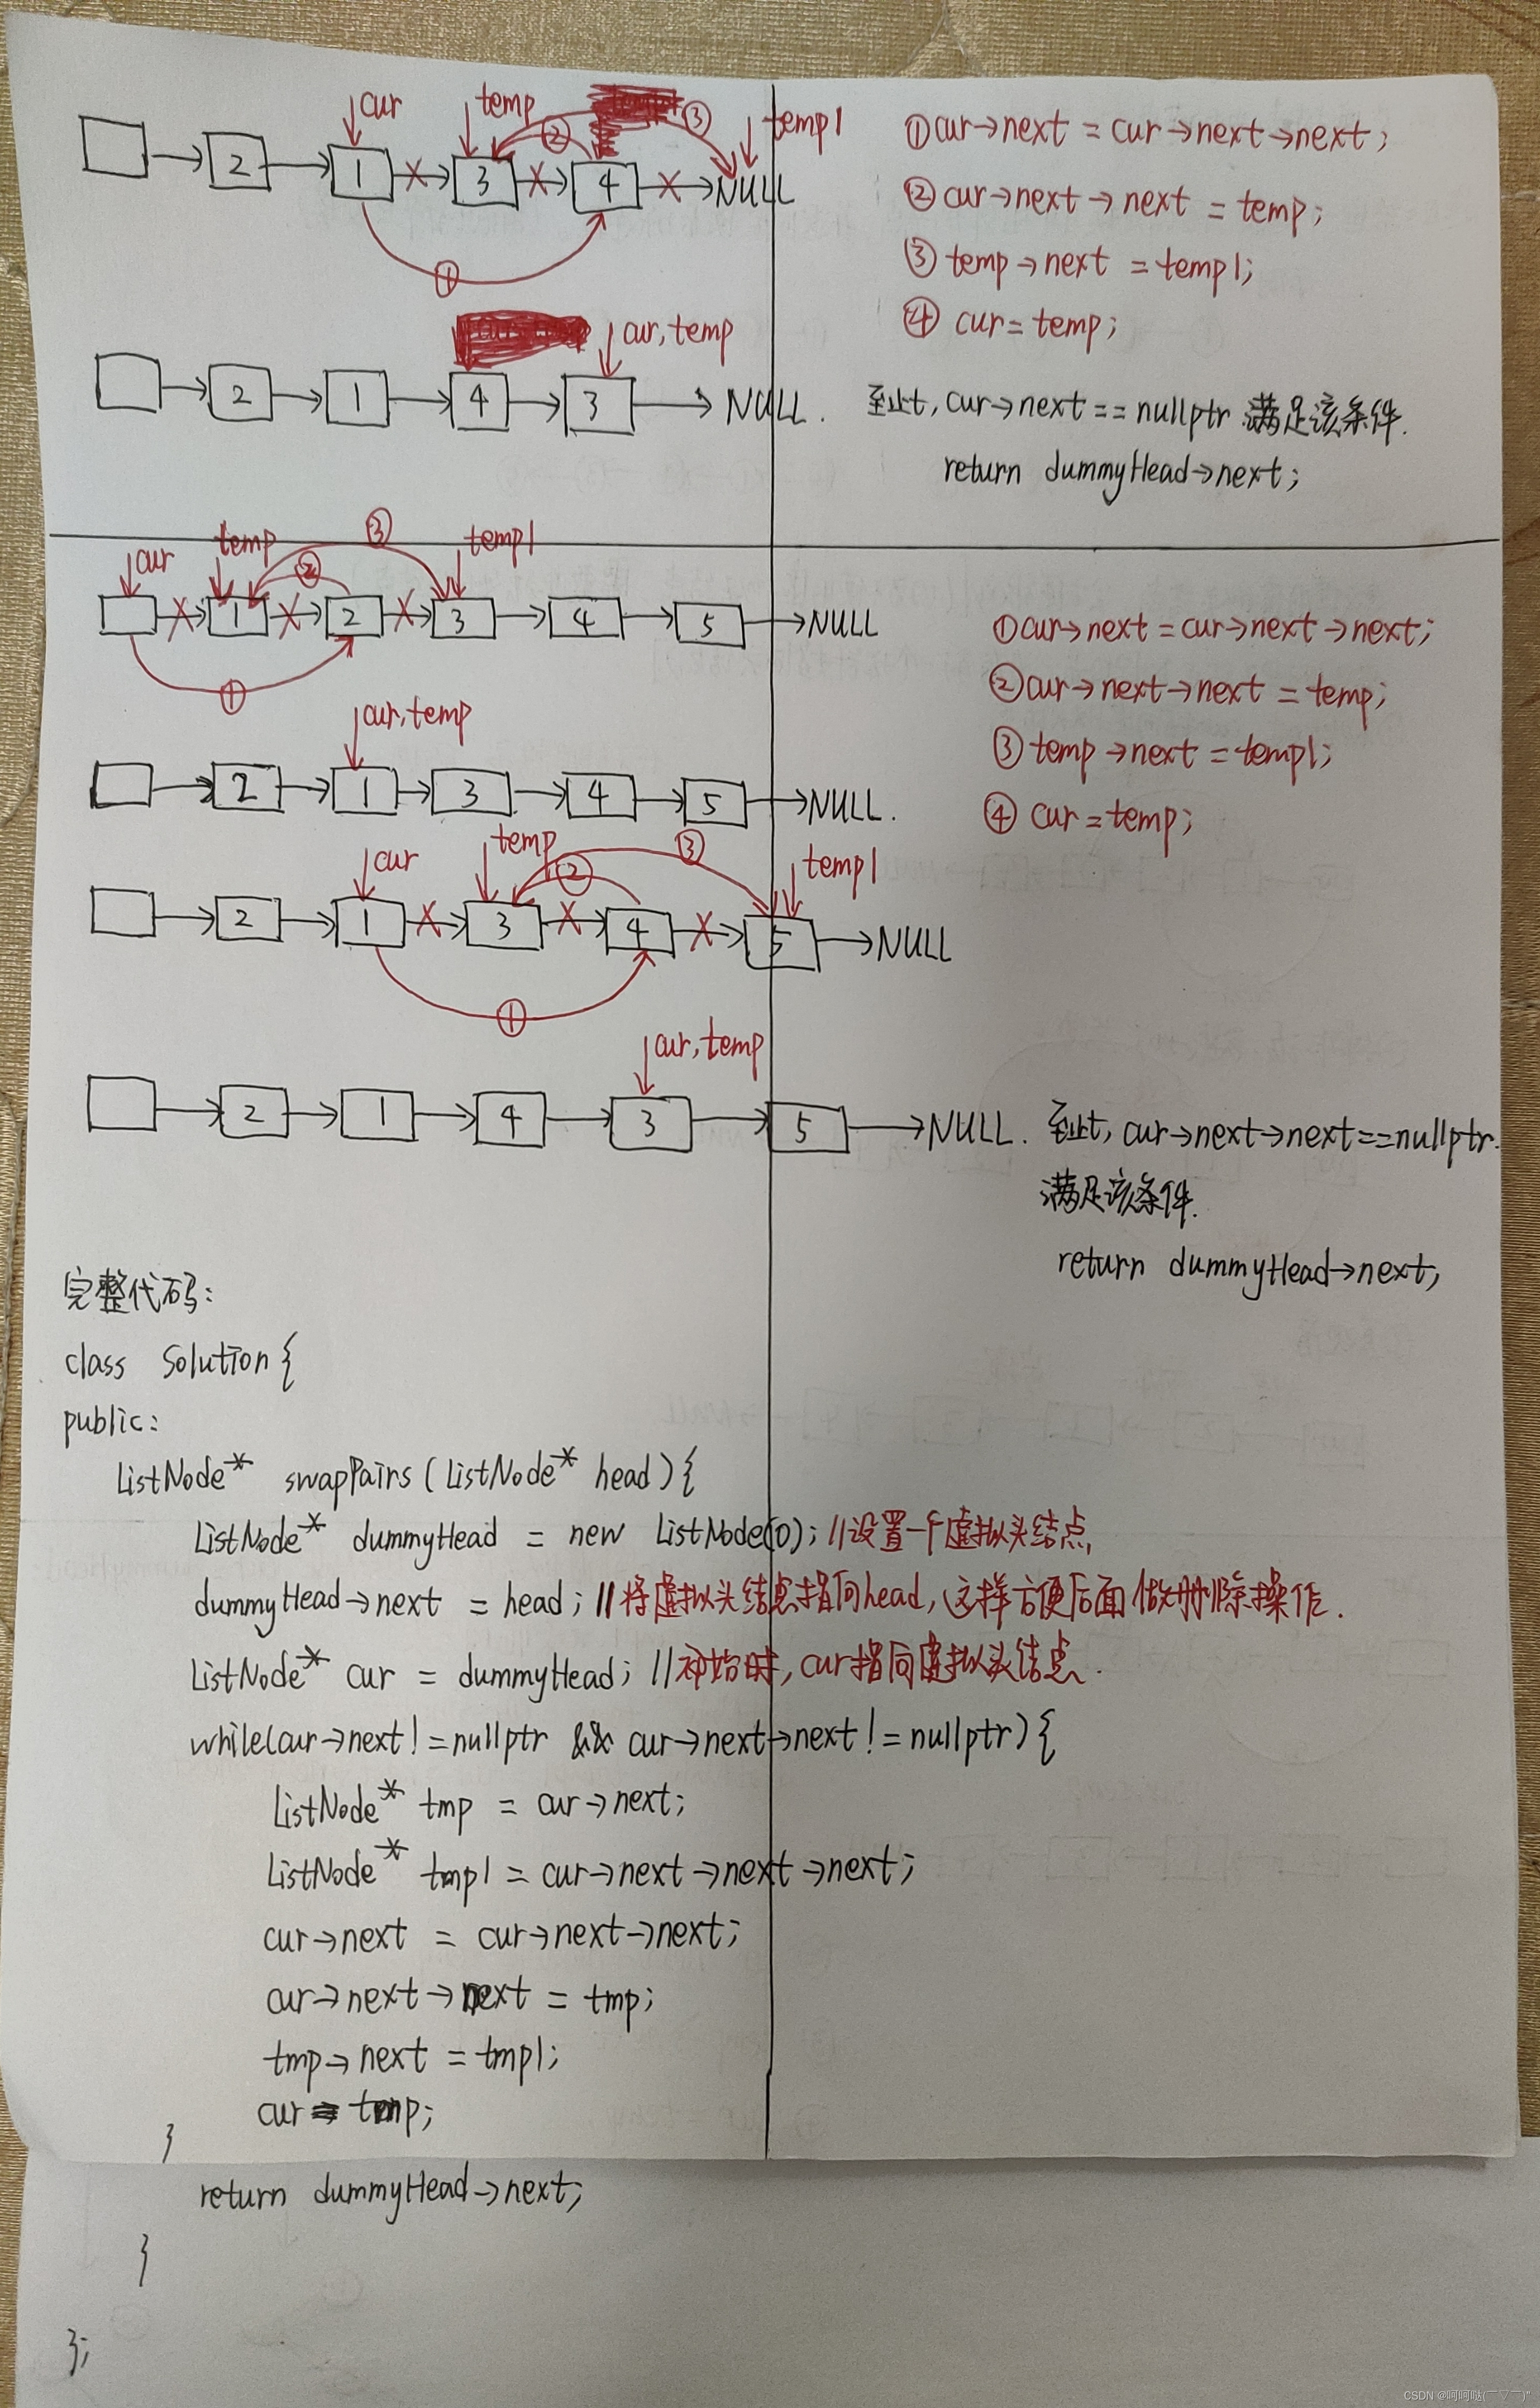 cur temp temp1
2 1 3 4 NULL
① ② ③
①cur→next = cur→next→next;
②cur→next→next = temp;
③temp→next = temp1;
④ cur = temp;
cur,temp
2 1 4 3 NULL.
至此, cur→next == nullptr 满足该条件.
return dummyHead→next;
cur temp temp1
1 2 3 4 5 NULL
① ② ③
①cur→next = cur→next→next;
②cur→next→next = temp;
③temp→next = temp1;
④ cur = temp;
cur,temp
2 1 3 4 5 NULL.
cur temp temp1
2 1 3 4 5 NULL
① ② ③
cur,temp
2 1 4 3 5 NULL.
至此, cur→next→next==nullptr.
满足该条件.
return dummyHead→next;
完整代码:
class Solution{
public:
ListNode* swapPairs(ListNode* head){
ListNode* dummyHead = new ListNode(0); //设置一个虚拟头结点
dummyHead→next = head; //将虚拟头结点指向head,这样方便后面做删除操作.
ListNode* cur = dummyHead; //初始时,cur指向虚拟头结点.
while(cur→next!=nullptr && cur→next→next!=nullptr){
ListNode* tmp = cur→next;
ListNode* tmp1 = cur→next→next→next;
cur→next = cur→next→next;
cur→next→next = tmp;
tmp→next = tmp1;
cur = tmp;
}
return dummyHead→next;
}
};